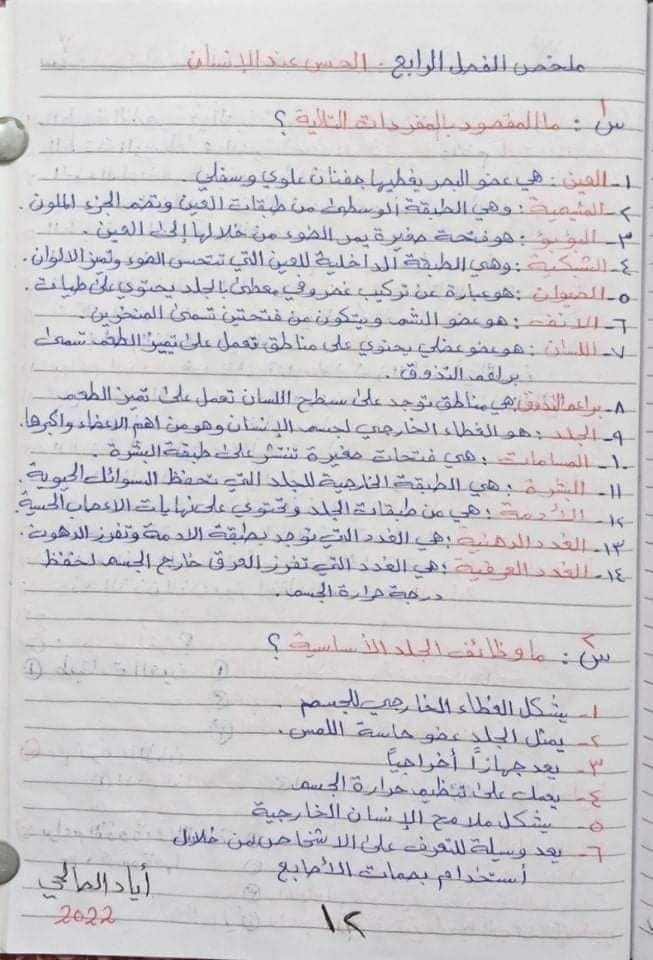 ملخص الفصل الرابع . الحس عند الإنسان
س١ : ما المقصود بالمفردات التالية ؟
١- العين : هي عضو البصر يغطيها جفنان علوي وسفلي .
٢- المشيمية : وهي الطبقة الوسطى من طبقات العين وتضم الجزء الملون .
٣- البؤبؤ : هو فتحة صغيرة يمر الضوء من خلالها إلى العين .
٤- الشبكية : وهي الطبقة الداخلية للعين التي تتحسس الضوء وتميز الالوان .
٥- الصيوان : هو عبارة عن تركيب غضروفي مغطى بالجلد يحتوي على طيات .
٦- الانف : هو عضو الشم ويتكون من فتحتين تسمى المنخرين .
٧- اللسان : هو عضو عضلي يحتوي على مناطق تعمل على تمييز الطعم تسمى
براعم التذوق .
٨- براعم التذوق هي مناطق توجد على سطح اللسان تعمل على تميز الطعم
٩- الجلد : هو الغطاء الخارجي لجسم الإنسان وهو من اهم الاعضاء واكبرها .
١٠- المسامات : هي فتحات صغيرة تنتشر على طبقة البشرة .
١١- البشرة : هي الطبقة الخارجية للجلد التي تحفظ السوائل الحيوية .
١٢- الأدمة : هي من طبقات الجلد وتحتوي على نهايات الاعصاب الحسية .
١٣- الغدد الدهنية : هي الغدد التي توجد بطبقة الادمة وتفرز الدهون .
١٤- الغدد العرقية : هي الغدد التي تفرز العرق خارج الجسم لحفظ
درجة حرارة الجسم .
س٢ : ما وظائف الجلد الأساسية ؟
١- يشكل الغطاء الخارجي للجسم .
٢- يمثل الجلد عضو حاسة اللمس .
٣- يعد جهازاً أخراجياً
٤- يعمل على تنظيم حرارة الجسم
٥- يشكل ملامح الإنسان الخارجية
٦- يعد وسيلة للتعرف على الاشخاص من خلال
أستخدام بصمات الأصابع
أياد الصالحي
2022
١٢